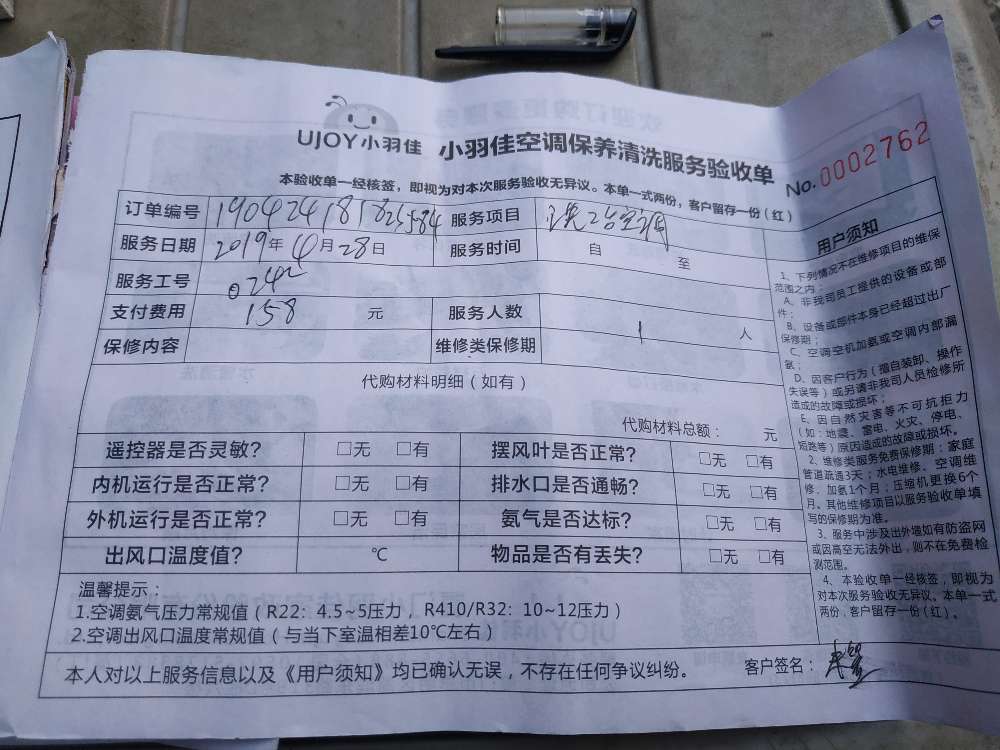 UJOY小羽佳 小羽佳空调保养清洗服务验收单 No.0002762
本验收单一经核签，即视为对本次服务验收无异议。本单一式两份，客户留存一份（红）
订单编号 服务项目 洗2台空调
服务日期 2019年4月28日 服务时间 自 至
服务工号 024
支付费用 158 元 服务人数 1 人
保修内容 维修类保修期
代购材料明细（如有）
代购材料总额： 元
遥控器是否灵敏？ □无 □有 摆风叶是否正常？ □无 □有
内机运行是否正常？ □无 □有 排水口是否通畅？ □无 □有
外机运行是否正常？ □无 □有 氨气是否达标？ □无 □有
出风口温度值？ ℃ 物品是否有丢失？ □无 □有
温馨提示：
1.空调氨气压力常规值（R22：4.5~5压力，R410/R32：10~12压力）
2.空调出风口温度常规值（与当下室温相差10℃左右）
本人对以上服务信息以及《用户须知》均已确认无误，不存在任何争议纠纷。 客户签名：
用户须知
1、下列情况不在维修项目的维保
范围之内：
A、非我司员工提供的设备或部
件；
B、设备或部件本身已经超过出厂
保修期；
C、空调空机加氨或空调内部漏
氨；
D、因客户行为（擅自装卸、操作
失误等）或另请非我司人员检修所
造成的故障或损坏；
E、因自然灾害等不可抗拒力
（如：地震、雷电、火灾、停电、
短路等）原因造成的故障或损坏。
2、维修类服务免费保修期：家庭
管道疏通3天；水电维修、空调维
修、加氨1个月；压缩机更换6个
月。其他维修项目以服务验收单填
写的保修期为准。
3、服务中涉及出外墙如有防盗网
或因高空无法外出，则不在免费检
测范围。
4、本验收单一经核签，即视为
对本次服务验收无异议。本单一式
两份，客户留存一份（红）。